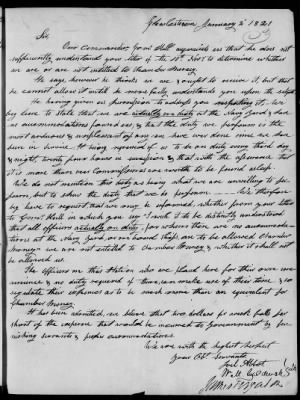 Charlestown January 5 1821
Sir
Our Commandant Com Hull apprizes us that he does not
sufficiently understand your letter of the 18th Nov to determine whether
we are or are not entitled to Chamber Money.
He says however he thinks we ought to receive it, but that
he cannot allow it until he more fully understands you upon the subject
He having given us permission to address you respecting it. We
beg leave to State that we are actually on duty at the Navy Yard & that
no accommodations
arduous & unpleasant of any we have ever done since we have
been in service. It being required of us to be on duty every third day
& night, twenty four hours in succession & that with the
it is more than our Commissions are worth to be found asleep.
We do not mention this duty as being what we are unwilling to per
form, but to show the duty that we do perform. We therefore
beg leave to request that we may be informed, whether from your letter
to Com Hull in which you say "I wish it to be distinctly understood
that all officers actually on duty, for whom there are no accommoda
tions at the Navy Yard, or on board Ship, are to be allowed Chamber
Money" we are not entitled to Chamber Money, & whether it shall not
be allowed us.
The officers on this Station who are placed here for their own conve
nience & no duty required of them, can make use of their time & so
regulate their expenses as to be much more than an equivalent for
Chamber Money.
It has been admitted, we believe that two dollars pr week falls far
short of the expense that would be incurred to Government by fur
nishing servants & proper accommodations.
We are with the highest respect
Your Obt Servants
Joel Abbot